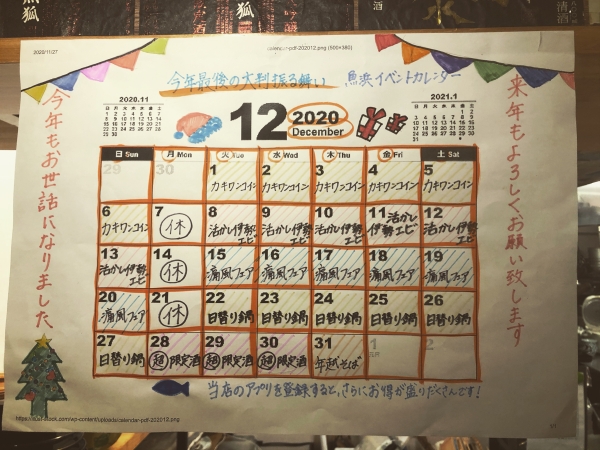 2020/11/27
calendar-pdf-202012.png (900×380)
今年最後の大判振る舞い 魚浜イベントカレンダー
今年もお世話になりました
来年もよろしくお願い致します
2020.11
2021.1
12 2020
December
日 Sun 月 Mon 火 Tue 水 Wed 木 Thu 金 Fri 土 Sat
29 30 1 2 3 4 5
カキワンコイン カキワンコイン カキワンコイン カキワンコイン カキワンコイン
6 7 8 9 10 11 12
カキワンコイン 休 活かし伊勢エビ 活かし伊勢エビ 活かし伊勢エビ 活かし伊勢エビ 活かし伊勢エビ
13 14 15 16 17 18 19
活かし伊勢エビ 休 痛風フェア 痛風フェア 痛風フェア 痛風フェア 痛風フェア
20 21 22 23 24 25 26
痛風フェア 休 日替り鍋 日替り鍋 日替り鍋 日替り鍋 日替り鍋
27 28 29 30 31 1 2
日替り鍋 超限定酒 超限定酒 超限定酒 年越そば
当店のアプリを登録すると、さらにお得が盛りだくさんです!